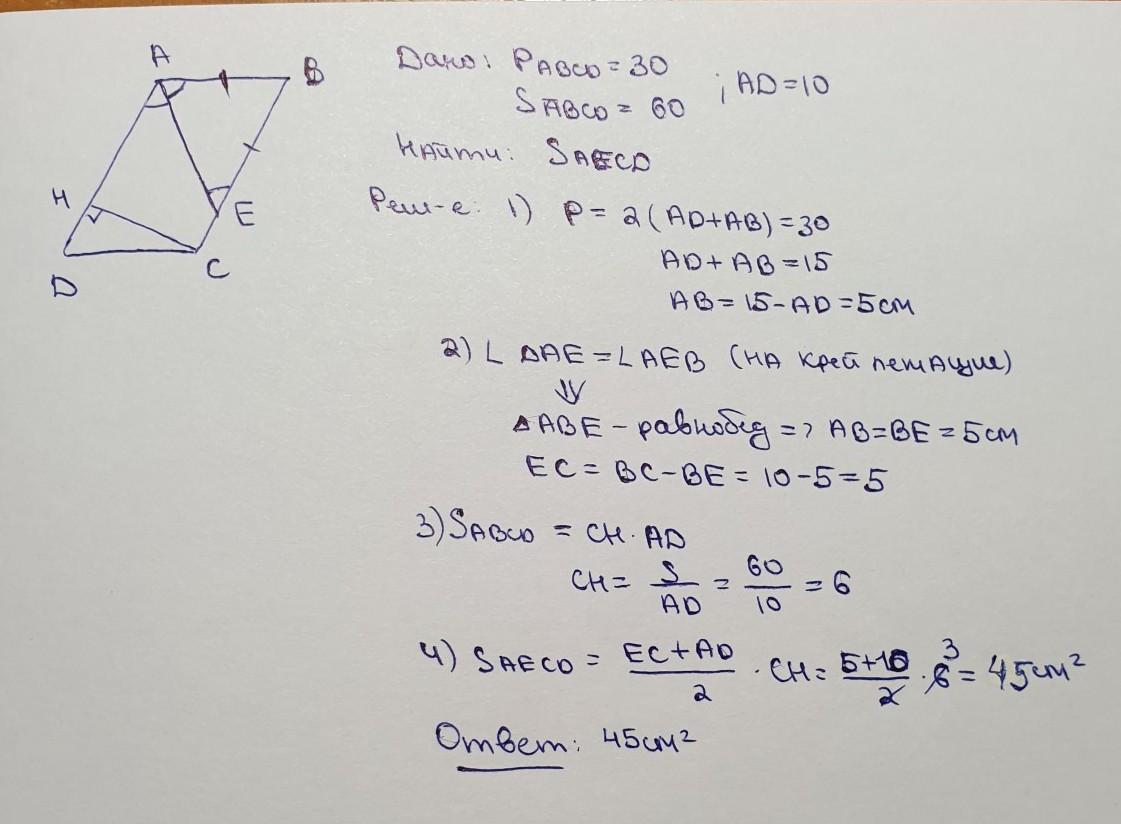 A
B
H
E
D
C
Дано: PABCD = 30 ; AD = 10
SABCD = 60
Найти: SAECD
Реш-е: 1) P = 2(AD+AB) = 30
AD + AB = 15
AB = 15 - AD = 5 см
2) ∠ DAE = ∠ AEB (на крей лежащие)
⇓
△ABE - равнобед => AB = BE = 5 см
EC = BC - BE = 10 - 5 = 5
3) SABCD = CH · AD
CH = S/AD = 60/10 = 6
4) SAECD = EC+AD/2 · CH = 5+10/2 · 6 3 = 45 см²
Ответ: 45 см²